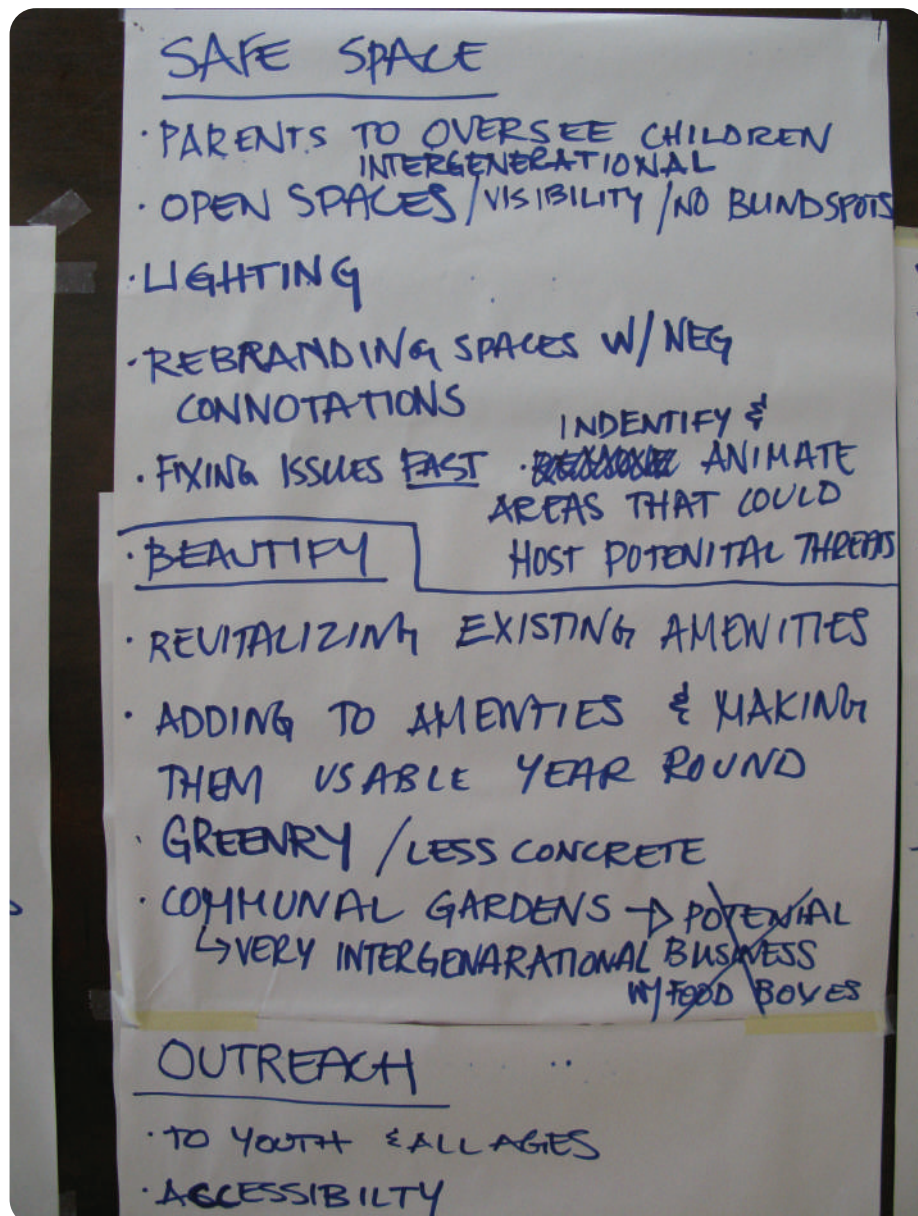 SAFE SPACE
· PARENTS TO OVERSEE CHILDREN
INTERGENERATIONAL
· OPEN SPACES / VISIBILITY / NO BLINDSPOTS
· LIGHTING
· REBRANDING SPACES W/ NEG
CONNOTATIONS
· FIXING ISSUES FAST
· INDENTIFY &
ANIMATE
AREAS THAT COULD
HOST POTENITAL THREATS
· BEAUTIFY
· REVITALIZING EXISTING AMENITIES
· ADDING TO AMENTIES & MAKING
THEM USABLE YEAR ROUND
· GREENRY / LESS CONCRETE
· COMMUNAL GARDENS → POTENIAL
↳ VERY INTERGENARATIONAL BUSINESS
W/ FOOD BOXES
OUTREACH
· TO YOUTH & ALL AGES
· ACCESSIBILTY